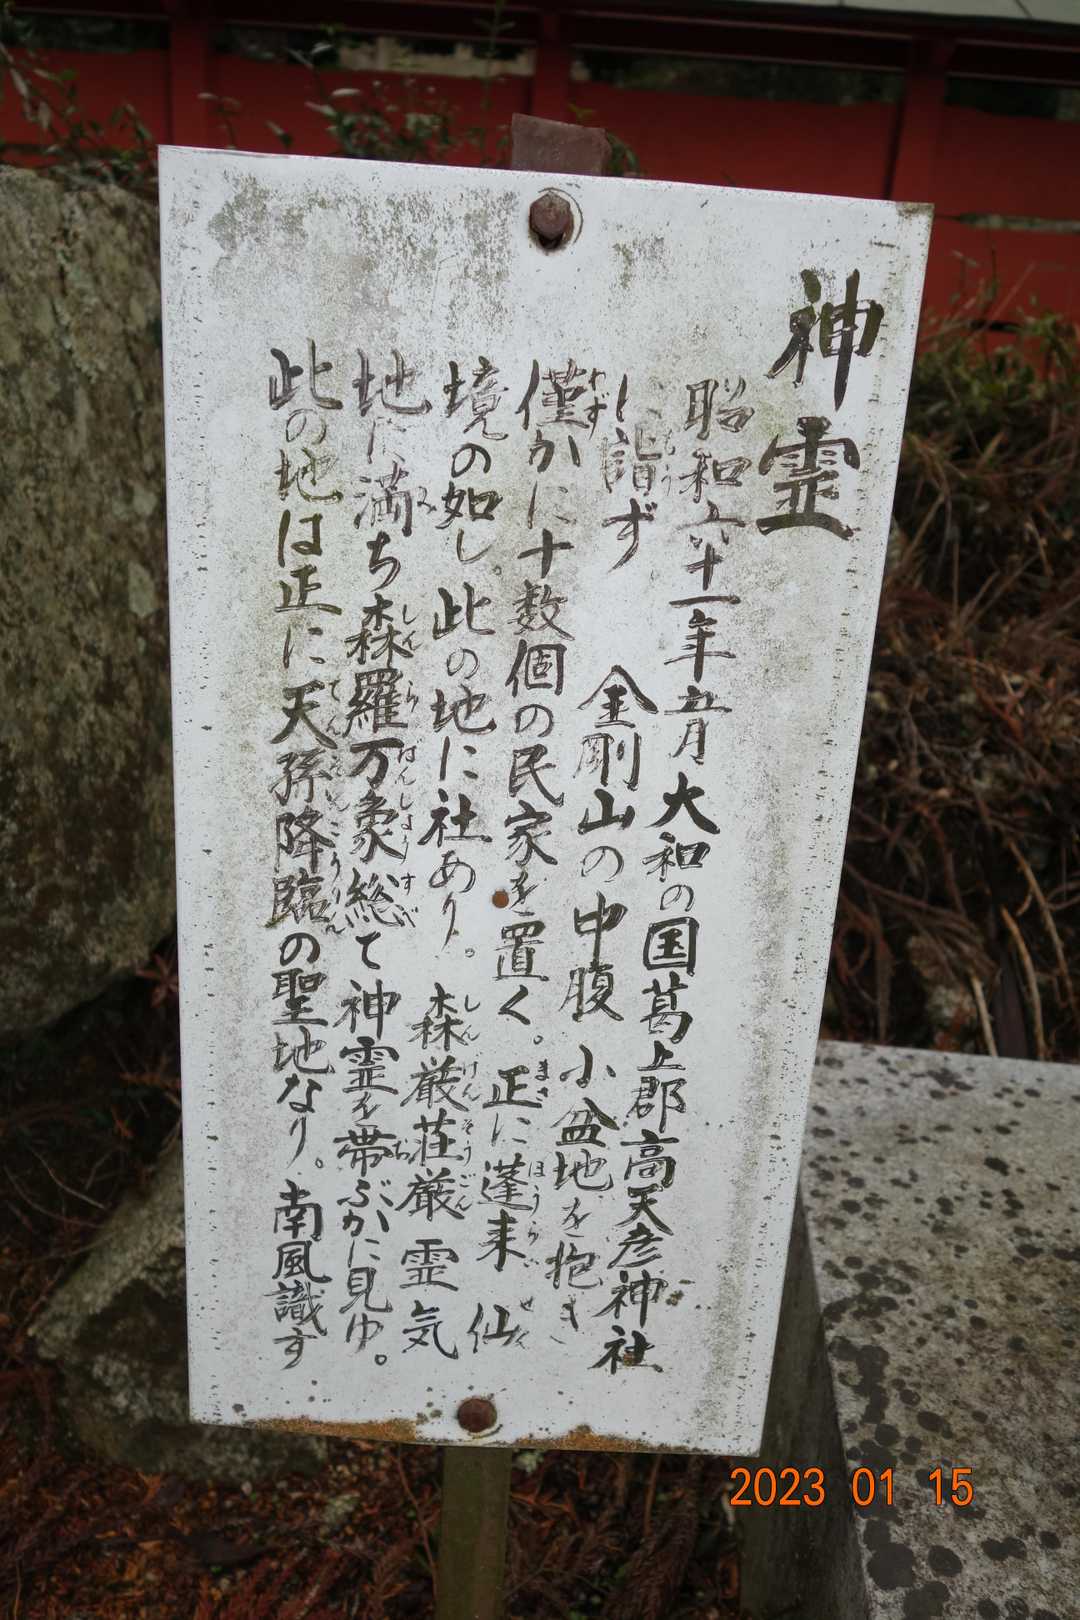 神霊
昭和六十一年五月 大和の国葛上郡高天彦神社
に詣ず 金剛山の中腹 小盆地を抱き
僅かに十数個の民家を置く。正に蓬来 仙
境の如し。此の地に社あり。森厳荘厳 霊気
地に満ち森羅万象総て神霊を帯ぶかに見ゆ。
此の地は正に天孫降臨の聖地なり。南風識す
2023 01 15